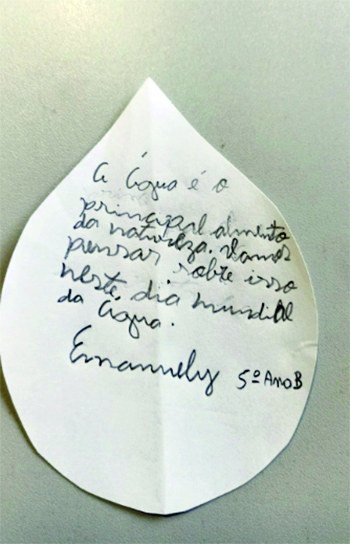 A Água é o
principal alimento
da natureza. Vamos
pensar sobre isso
neste dia mundial
da Água.
Emanuely 5º Ano B